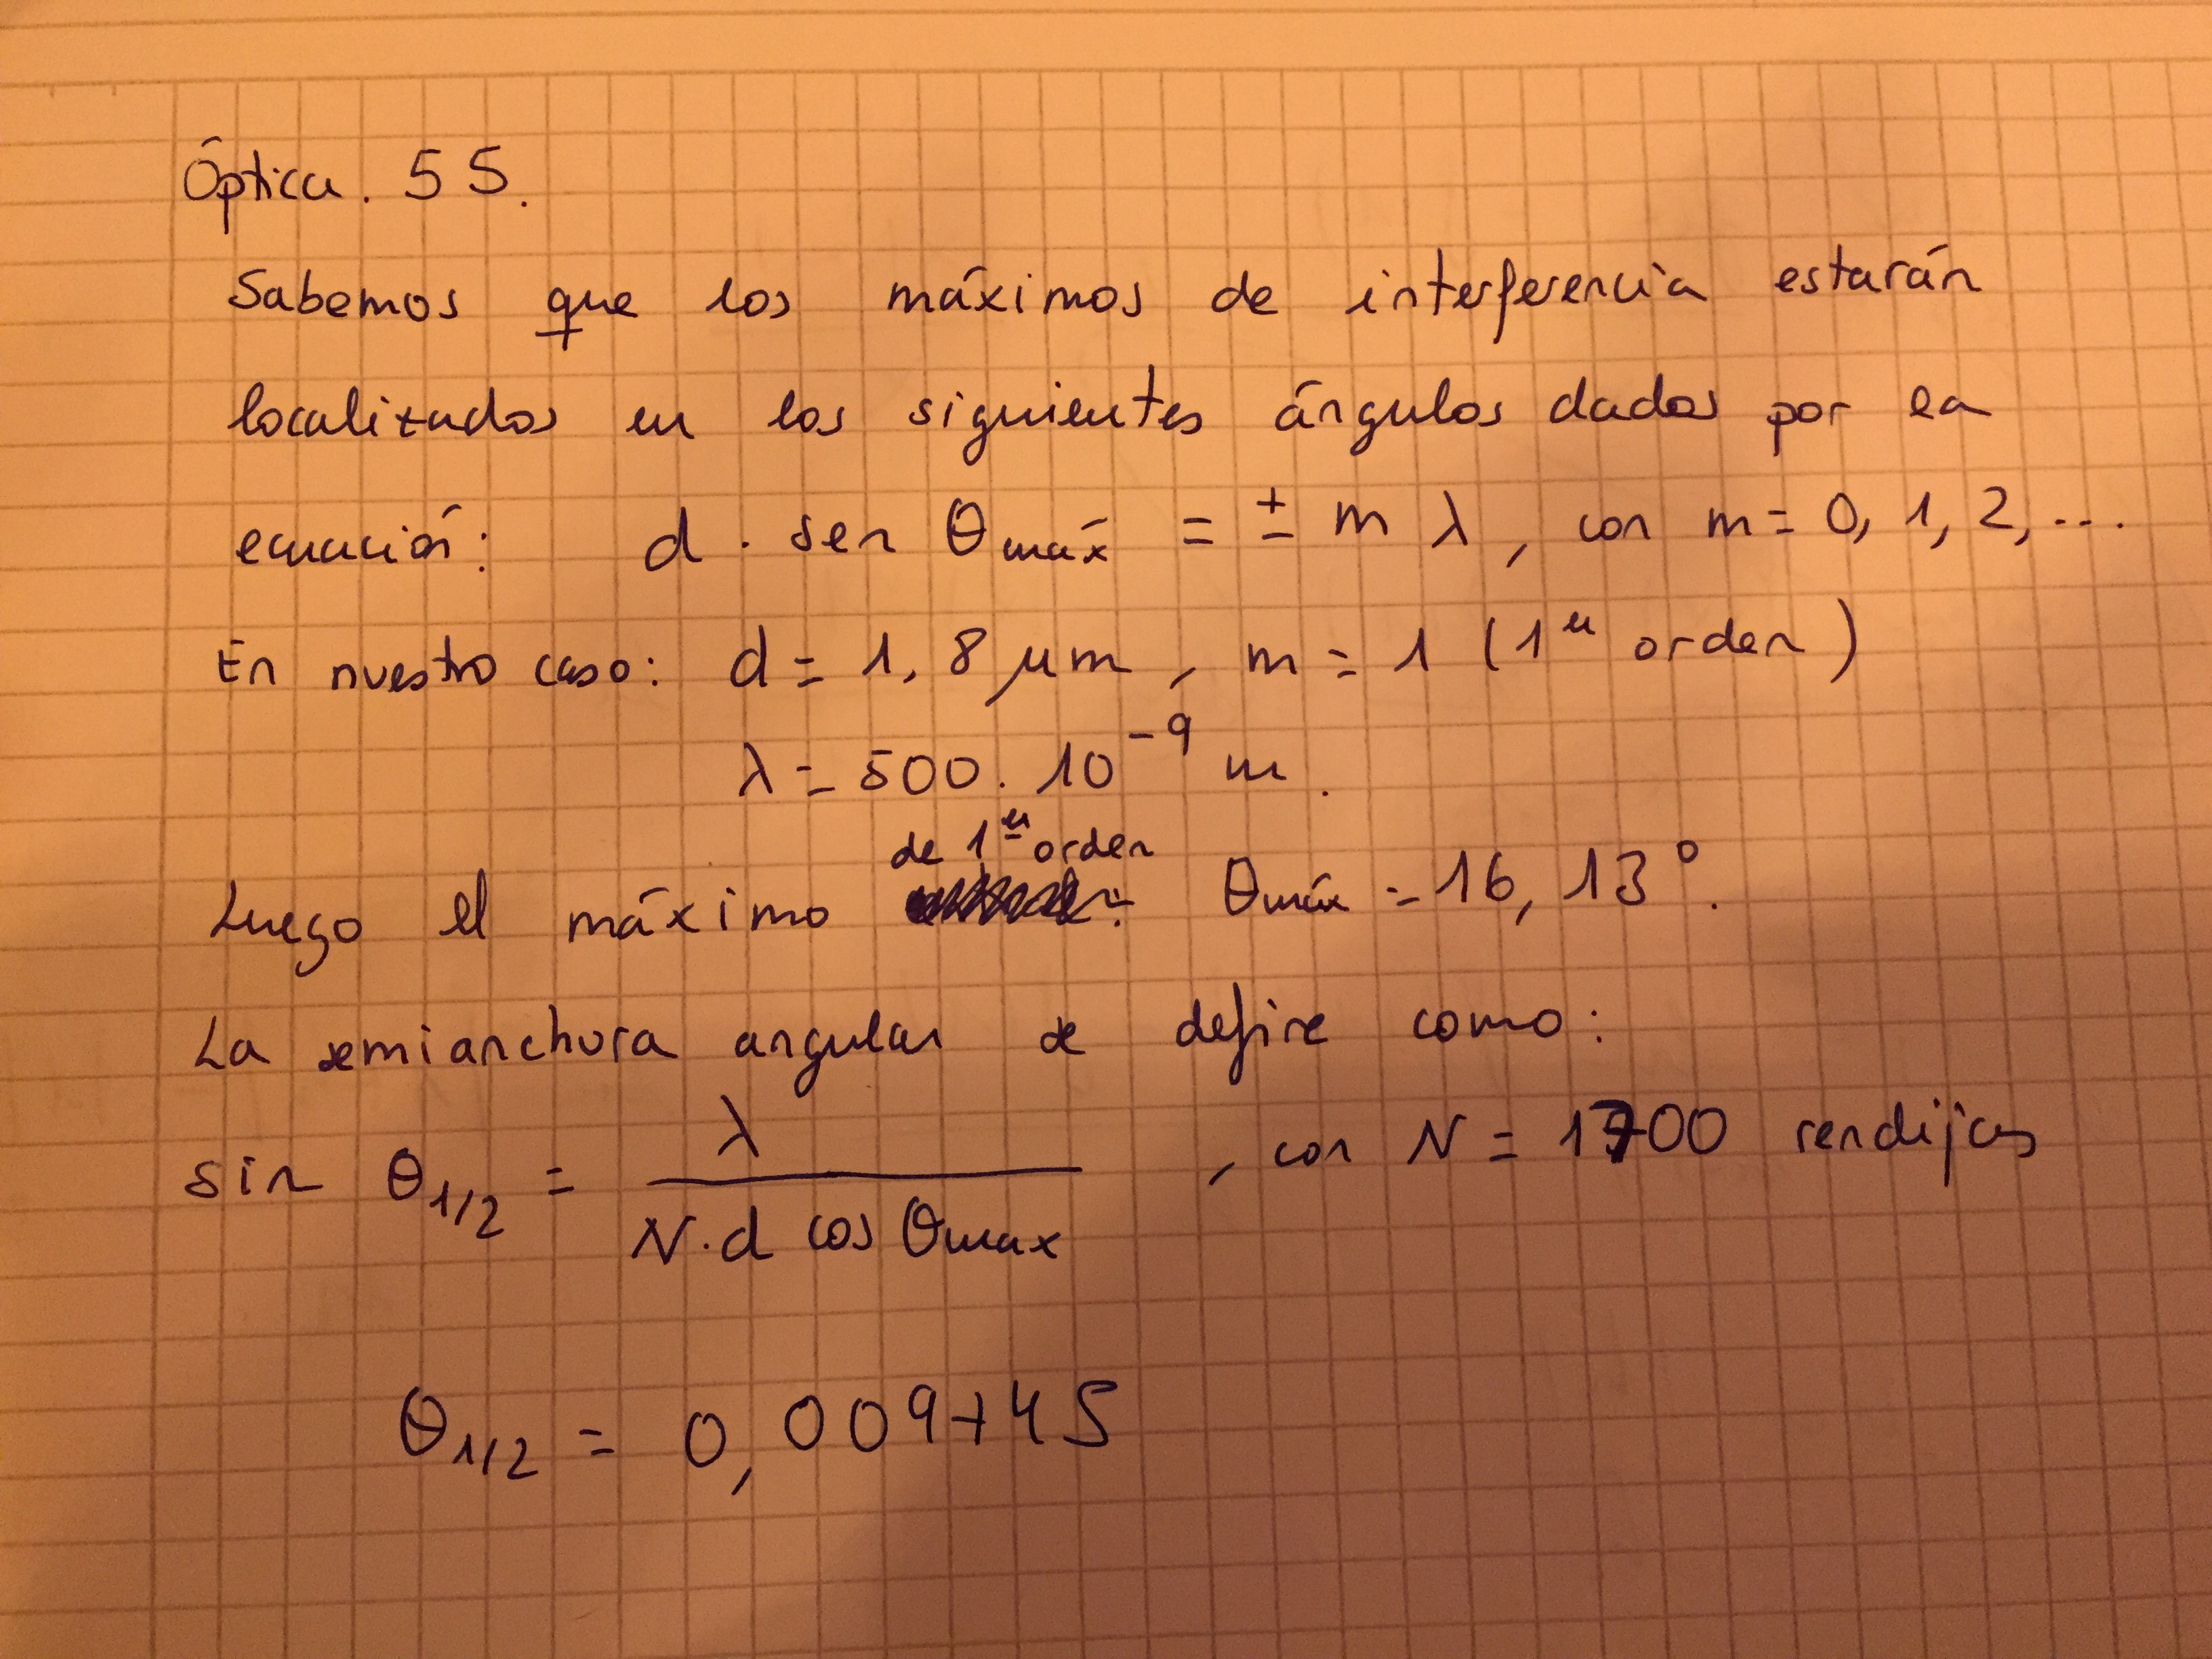 Óptica. 55.
Sabemos que los máximos de interferencia estarán
localizados en los siguientes ángulos dados por la
ecuación: d · sen θmáx = ± m λ, con m = 0, 1, 2, ...
En nuestro caso: d = 1,8 μm, m = 1 (1er orden)
λ = 500 · 10⁻⁹ m.
de 1er orden
Luego el máximo : θmáx = 16,13°.
La semianchura angular se define como:
sin θ1/2 = λ / (N·d cos θmax) , con N = 1700 rendijas
θ1/2 = 0,009745